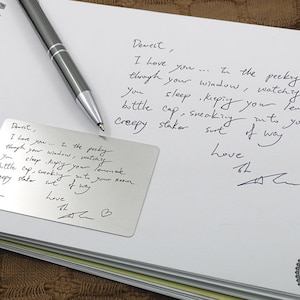 Dearest,
I love you ... in the peeky
through your window, watching
you sleep, keeping your
bottle cap, sneaking into your
creepy stalker sort of way
Love,
Dearest,
I love you ... in the peeky
through your window, watching
you sleep, keeping your
bottle cap, sneaking into your room
creepy stalker sort of way
Love